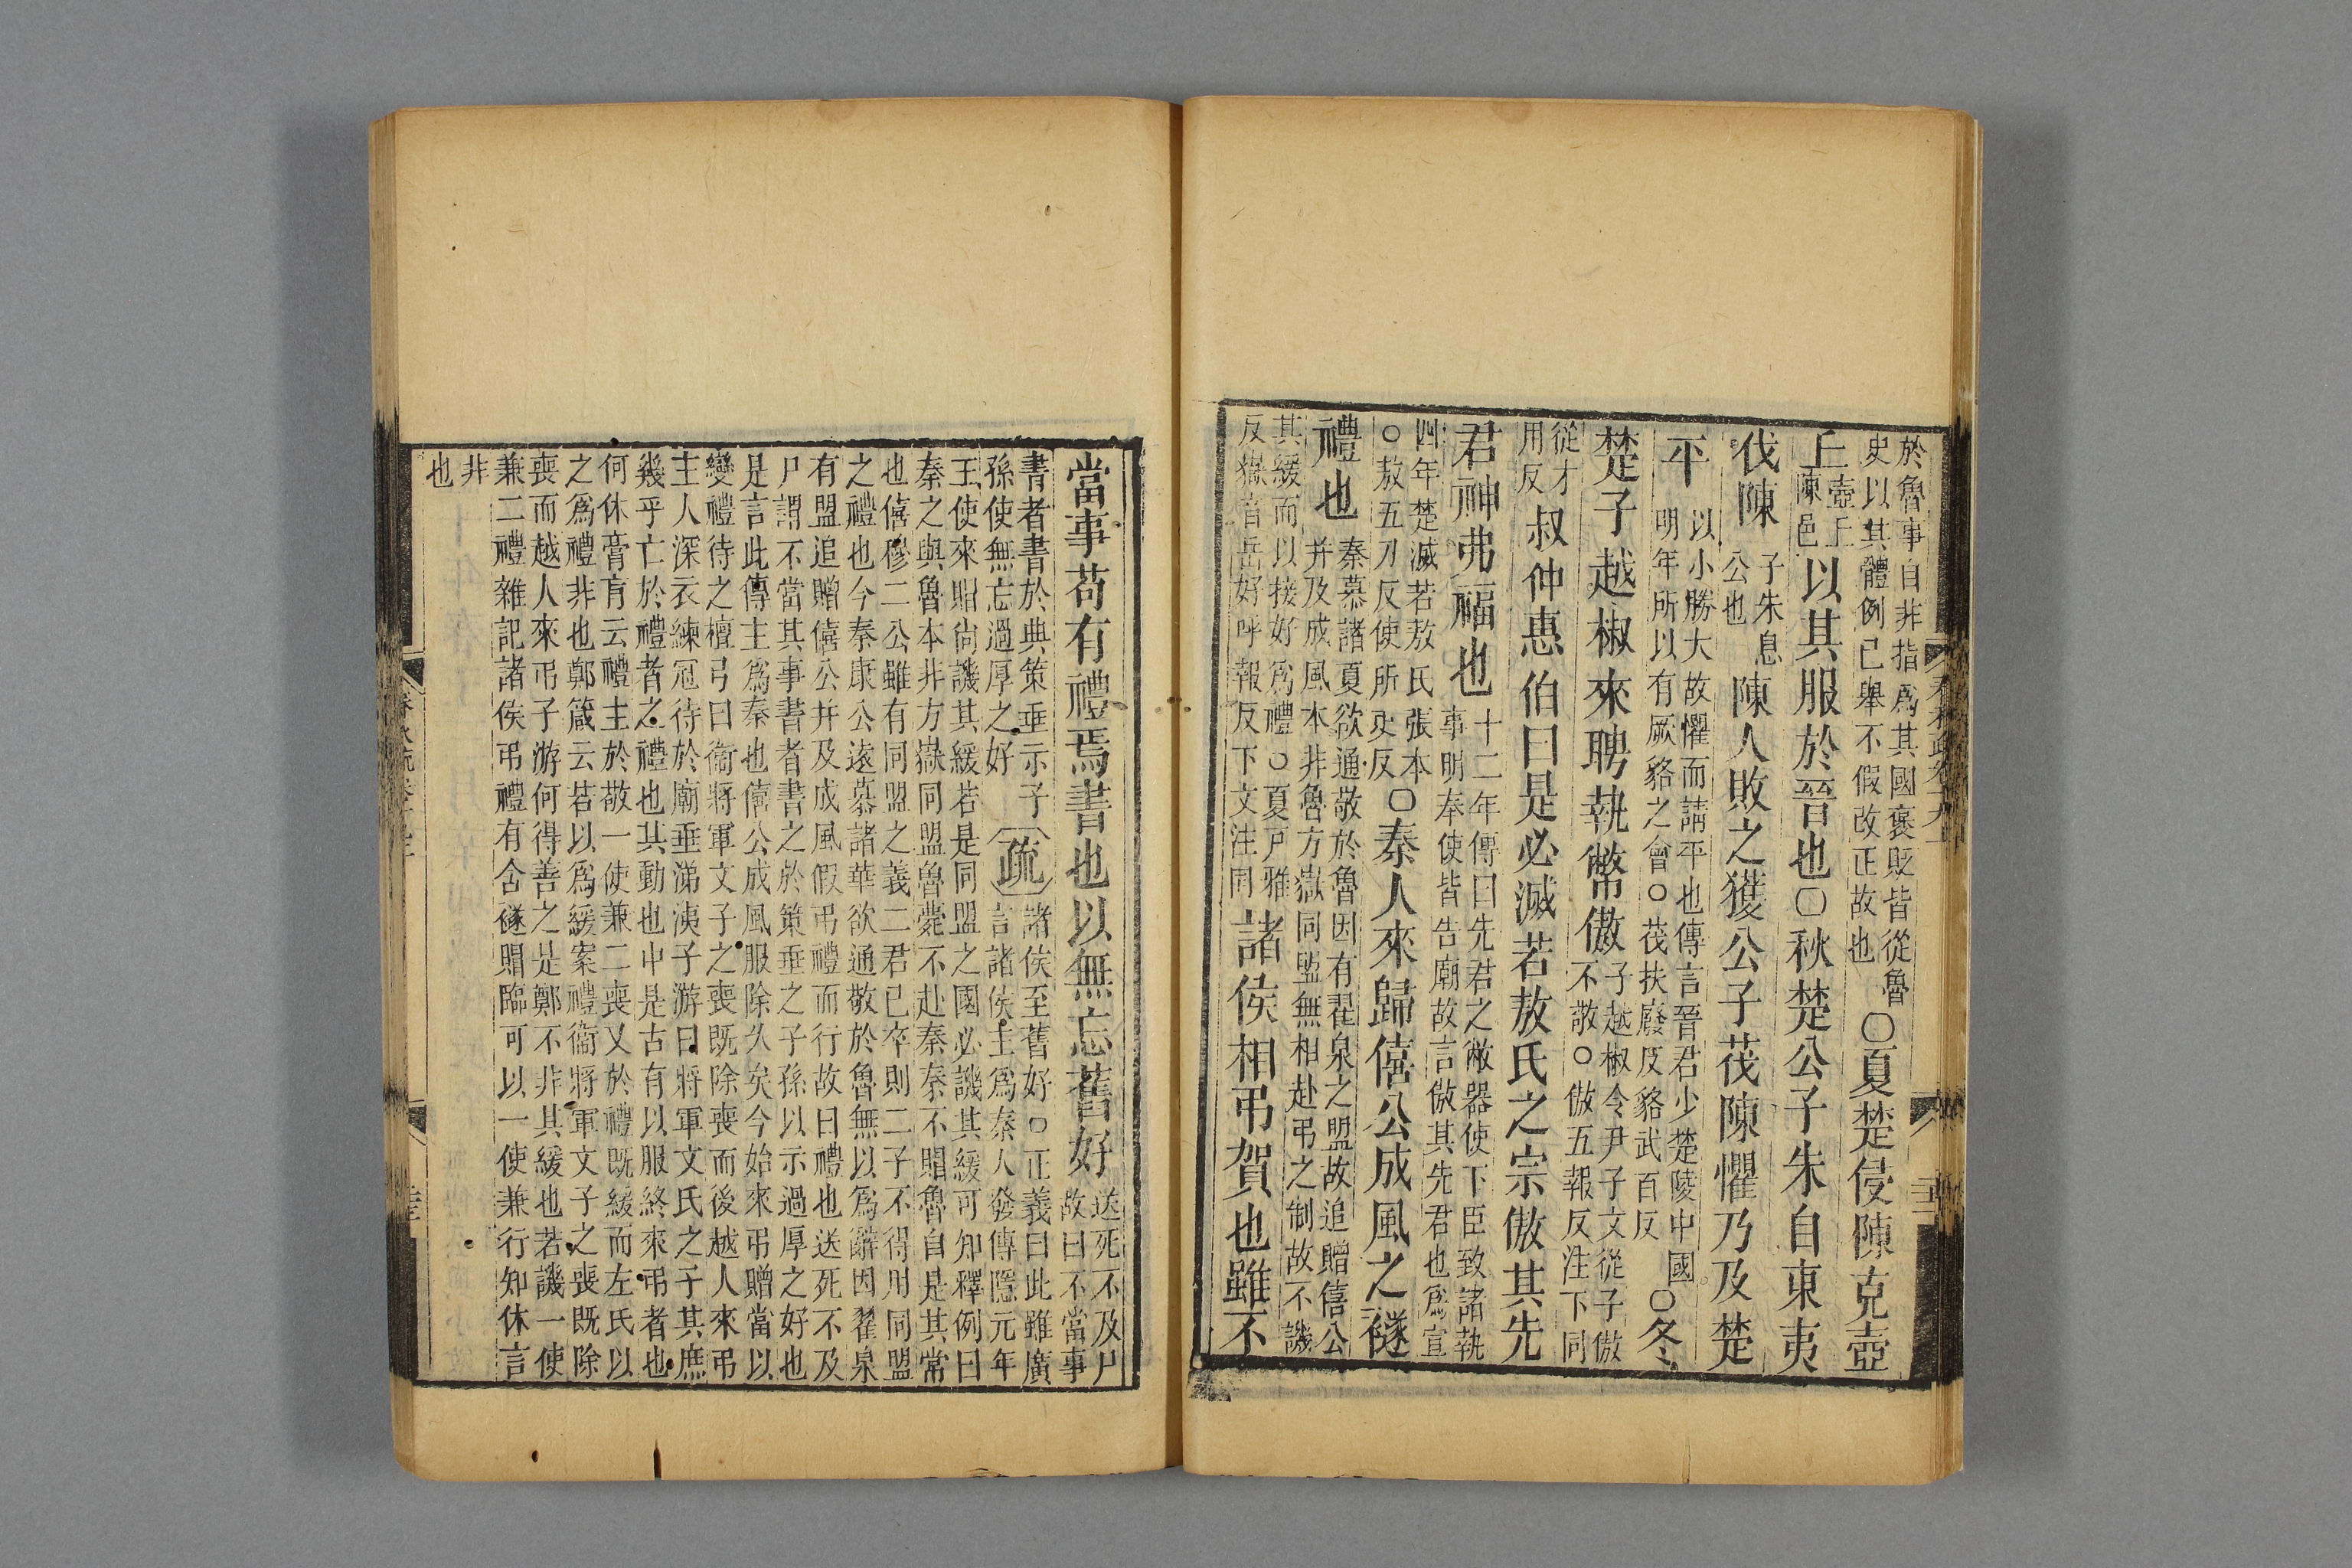 於魯事自非指為其國褒貶皆從魯
史以其體例已舉不假改正故也
○夏楚侵陳克壺
丘
壺丘
陳邑
以其服於晉也○秋楚公子朱自東夷
伐陳
子朱息
公也
陳人敗之獲公子茷陳懼乃及楚
平
以小勝大故懼而請平也傳言晉君少楚陵中國
明年所以有厥貉之會○茷扶廢反貉武百反
○冬
楚子越椒來聘執幣傲
子越椒令尹子文從子傲
不敬○傲五報反注下同
從才
用反
叔仲惠伯曰是必滅若敖氏之宗傲其先
君神弗福也
十二年傳曰先君之敝器使下臣致諸執
事明奉使皆告廟故言傲其先君也為宣
四年楚滅若敖氏張本
○敖五刀反使所吏反
○秦人來歸僖公成風之襚
禮也
秦慕諸夏欲通敬於魯因有翟泉之盟故追贈僖公
并及成風本非魯方嶽同盟無相赴弔之制故不譏
其緩而以接好為禮○夏戶雅
反嶽音岳好呼報反下文注同
諸侯相弔賀也雖不
當事苟有禮焉書也以無忘舊好
送死不及尸
故曰不當事
書者書於典策垂示子
孫使無忘過厚之好
疏
諸侯至舊好○正義曰此雖廣
言諸侯主為秦人發傳隱元年
王使來賵尚譏其緩若是同盟之國必譏其緩可知釋例曰
秦之與魯本非方嶽同盟魯薨不赴秦秦不賵魯自是其常
也僖穆二公雖有同盟之義二君已卒則二子不得用同盟
之禮也今秦康公遠慕諸華欲通敬於魯無以為辭因翟泉
有盟追贈僖公并及成風假弔禮而行故曰禮也送死不及
尸謂不當其事書者書之於策垂之子孫以示過厚之好也
是言此傳主為秦也僖公成風服除久矣今始來弔贈當以
變禮待之檀弓曰衞將軍文子之喪既除喪而後越人來弔
主人深衣練冠待於廟垂涕洟子游曰將軍文氏之子其庶
幾乎亡於禮者之禮也其動也中是古有以服終來弔者也
何休膏肓云禮主於敬一使兼二喪又於禮既緩而左氏以
之為禮非也鄭箴云若以為緩案禮衞將軍文子之喪既除
喪而越人來弔子游何得善之是鄭不非其緩也若譏一使
兼二禮雜記諸侯弔禮有含襚賵臨可以一使兼行知休言
非
也